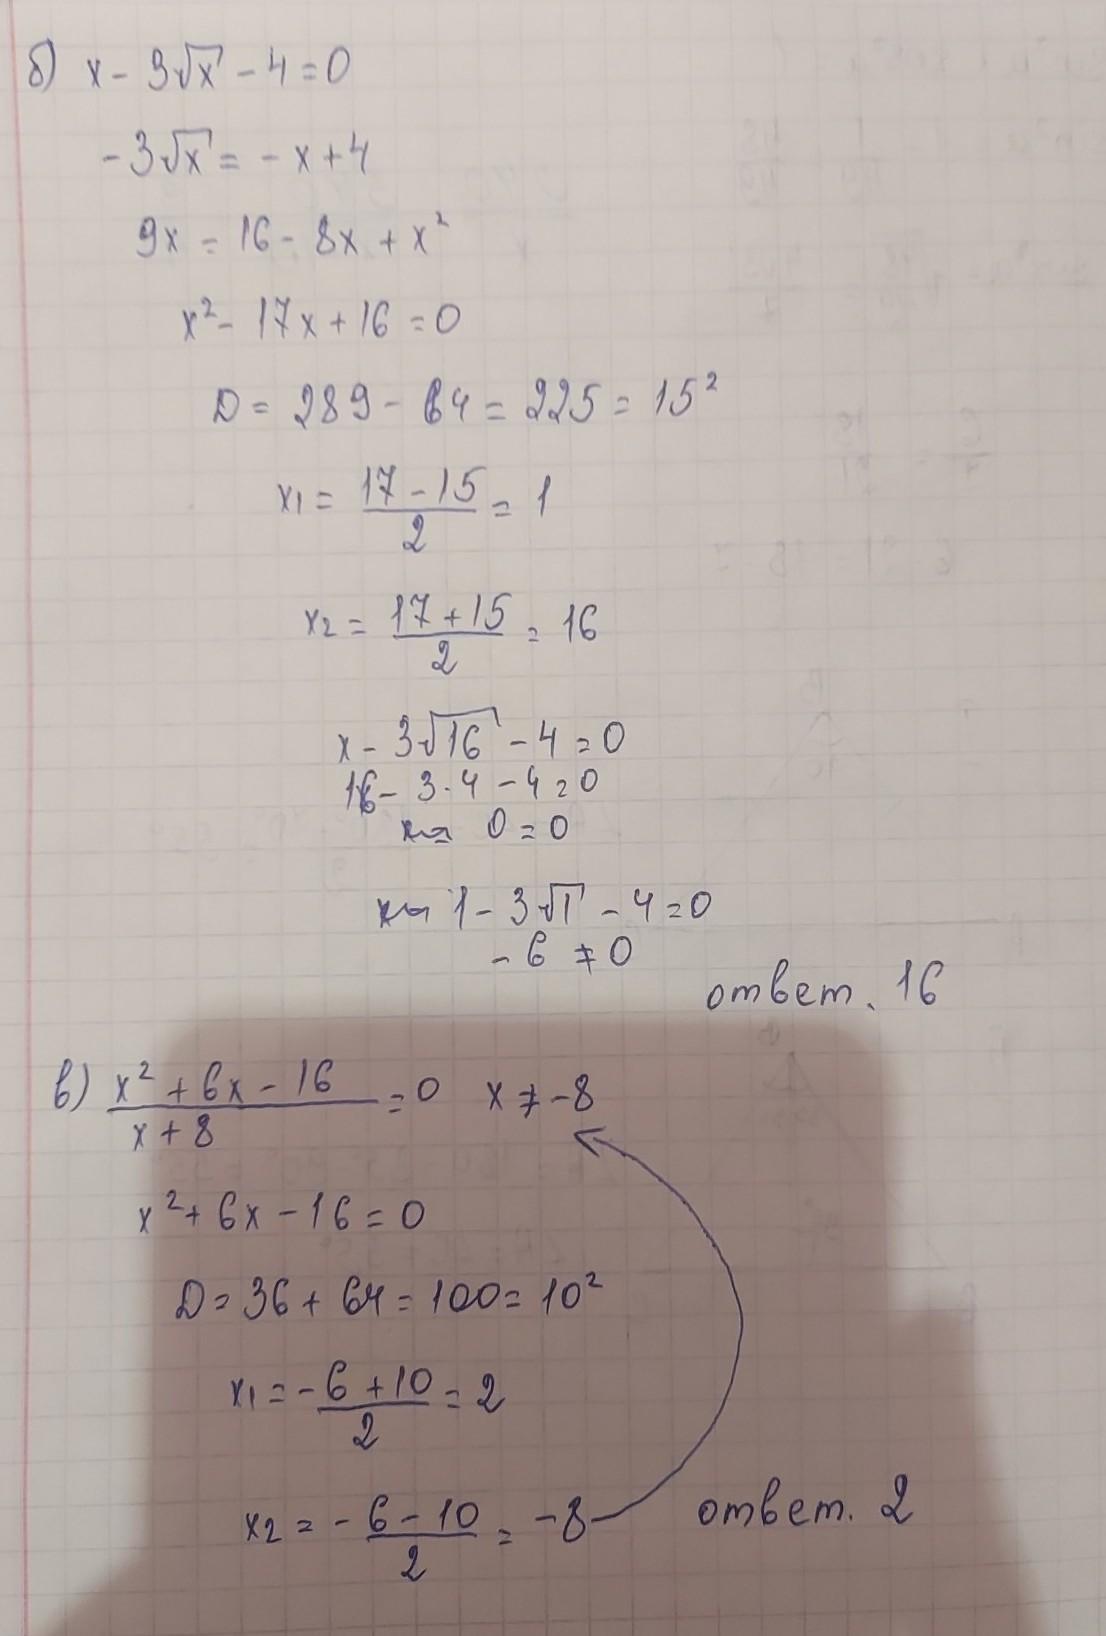 б) x - 3√x - 4 = 0
-3√x = - x + 4
9x = 16 - 8x + x²
x² - 17x + 16 = 0
D = 289 - 64 = 225 = 15²
x1 = (17 - 15)/2 = 1
x2 = (17 + 15)/2 = 16
x - 3√16 - 4 = 0
16 - 3·4 - 4 = 0
0 = 0
1 - 3√1 - 4 = 0
- 6 ≠ 0
ответ. 16
в) (x² + 6x - 16)/(x + 8) = 0 x ≠ -8
x² + 6x - 16 = 0
D = 36 + 64 = 100 = 10²
x1 = -(6 + 10)/2 = 2
x2 = -(6 - 10)/2 = -8
ответ. 2